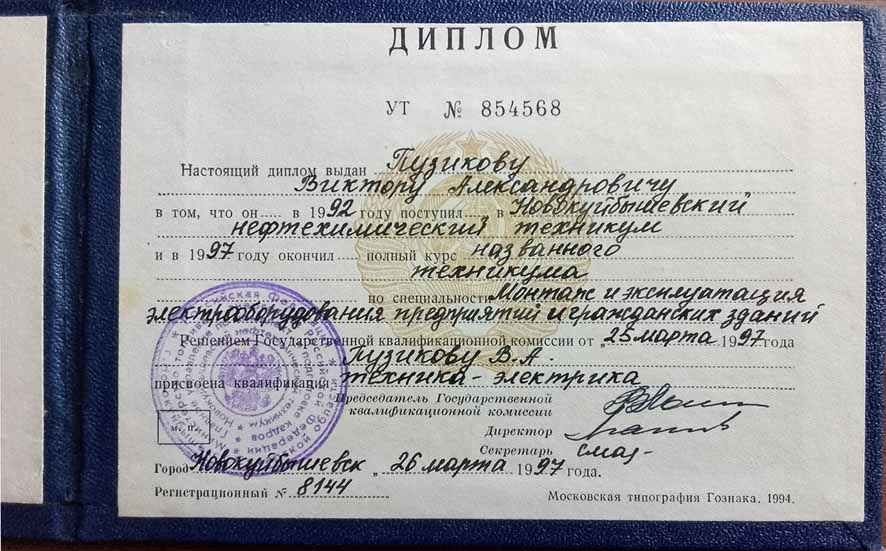 ДИПЛОМ
УТ № 854568
Настоящий диплом выдан Пузикову
Виктору Александровичу
в том, что он в 1992 году поступил в Новокуйбышевский
нефтехимический техникум
и в 1997 году окончил полный курс названного
техникума
по специальности Монтаж и эксплуатация
электрооборудования предприятий и гражданских зданий
Решением Государственной квалификационной комиссии от „25 марта 1997 года
Пузикову В.А.
присвоена квалификация техника-электрика
Председатель Государственной
квалификационной комиссии
Директор
Секретарь
м. п.
Город Новокуйбышевск „26 марта 1997 года.
Регистрационный № 8144
Московская типография Гознака. 1994.